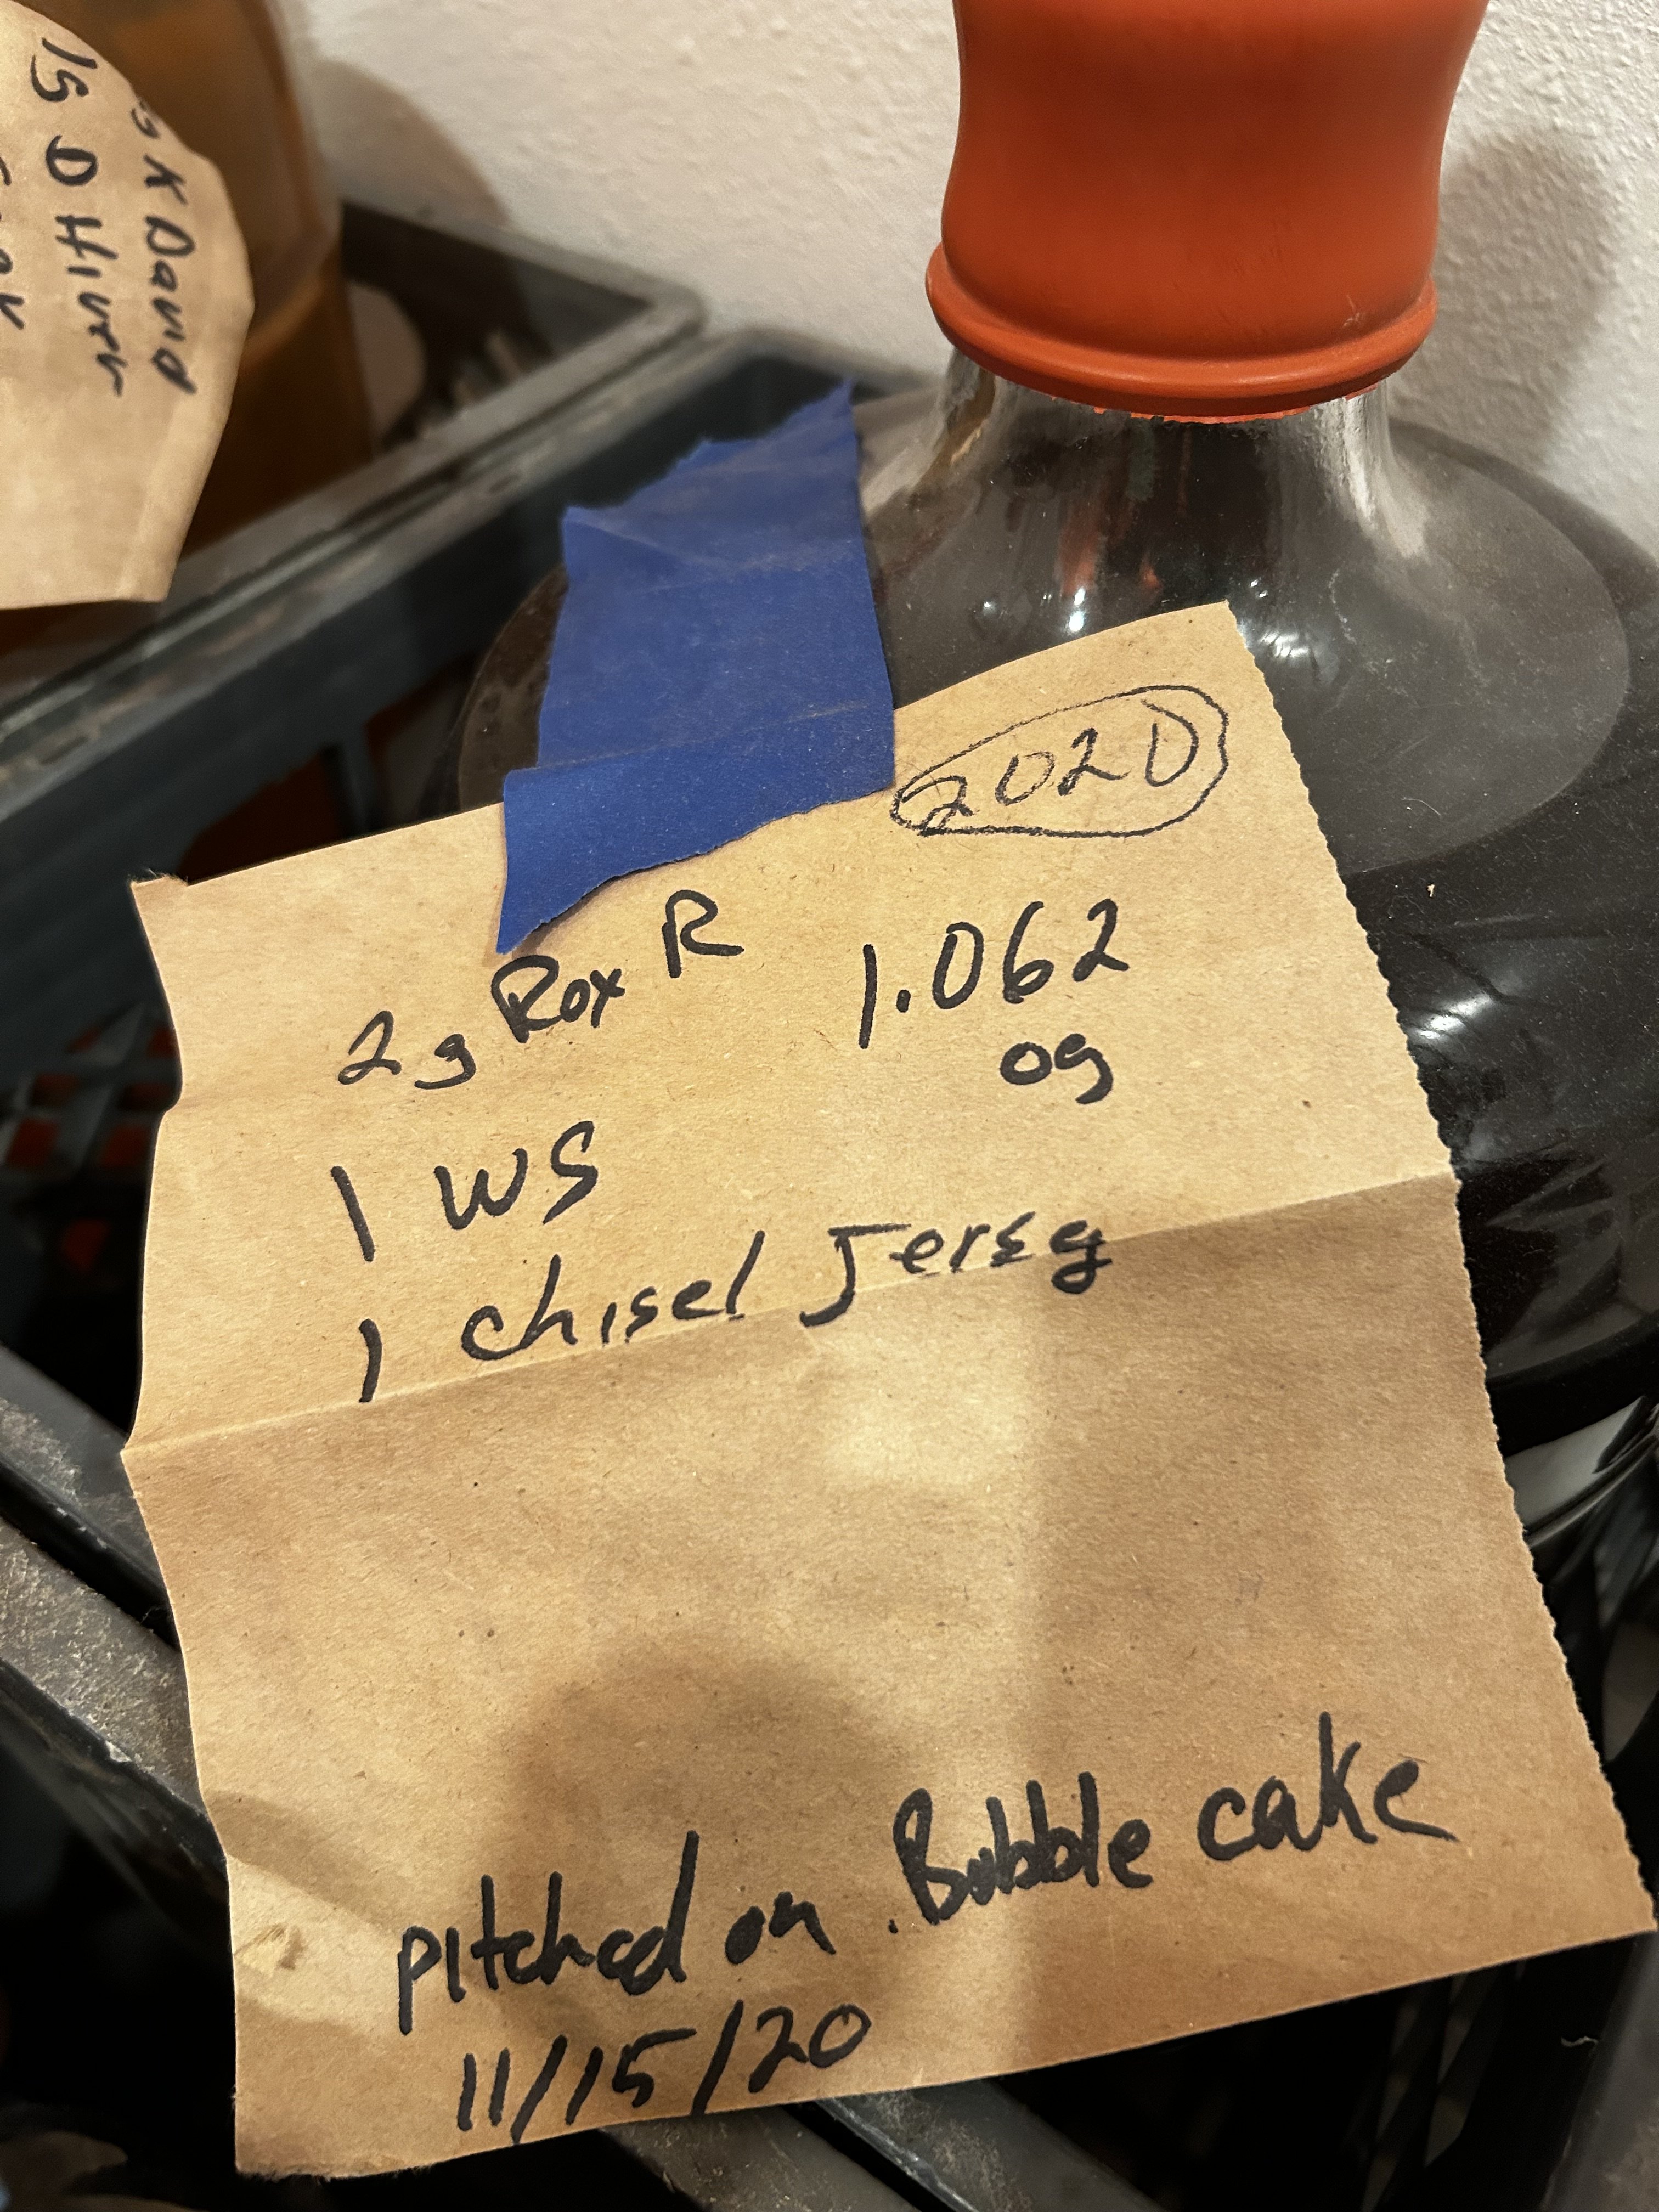 2020
2g Rox R 1.062
og
1 WS
1 Chisel Jersey
pitched on Bubble cake
11/15/20
K David
15 D Hiver